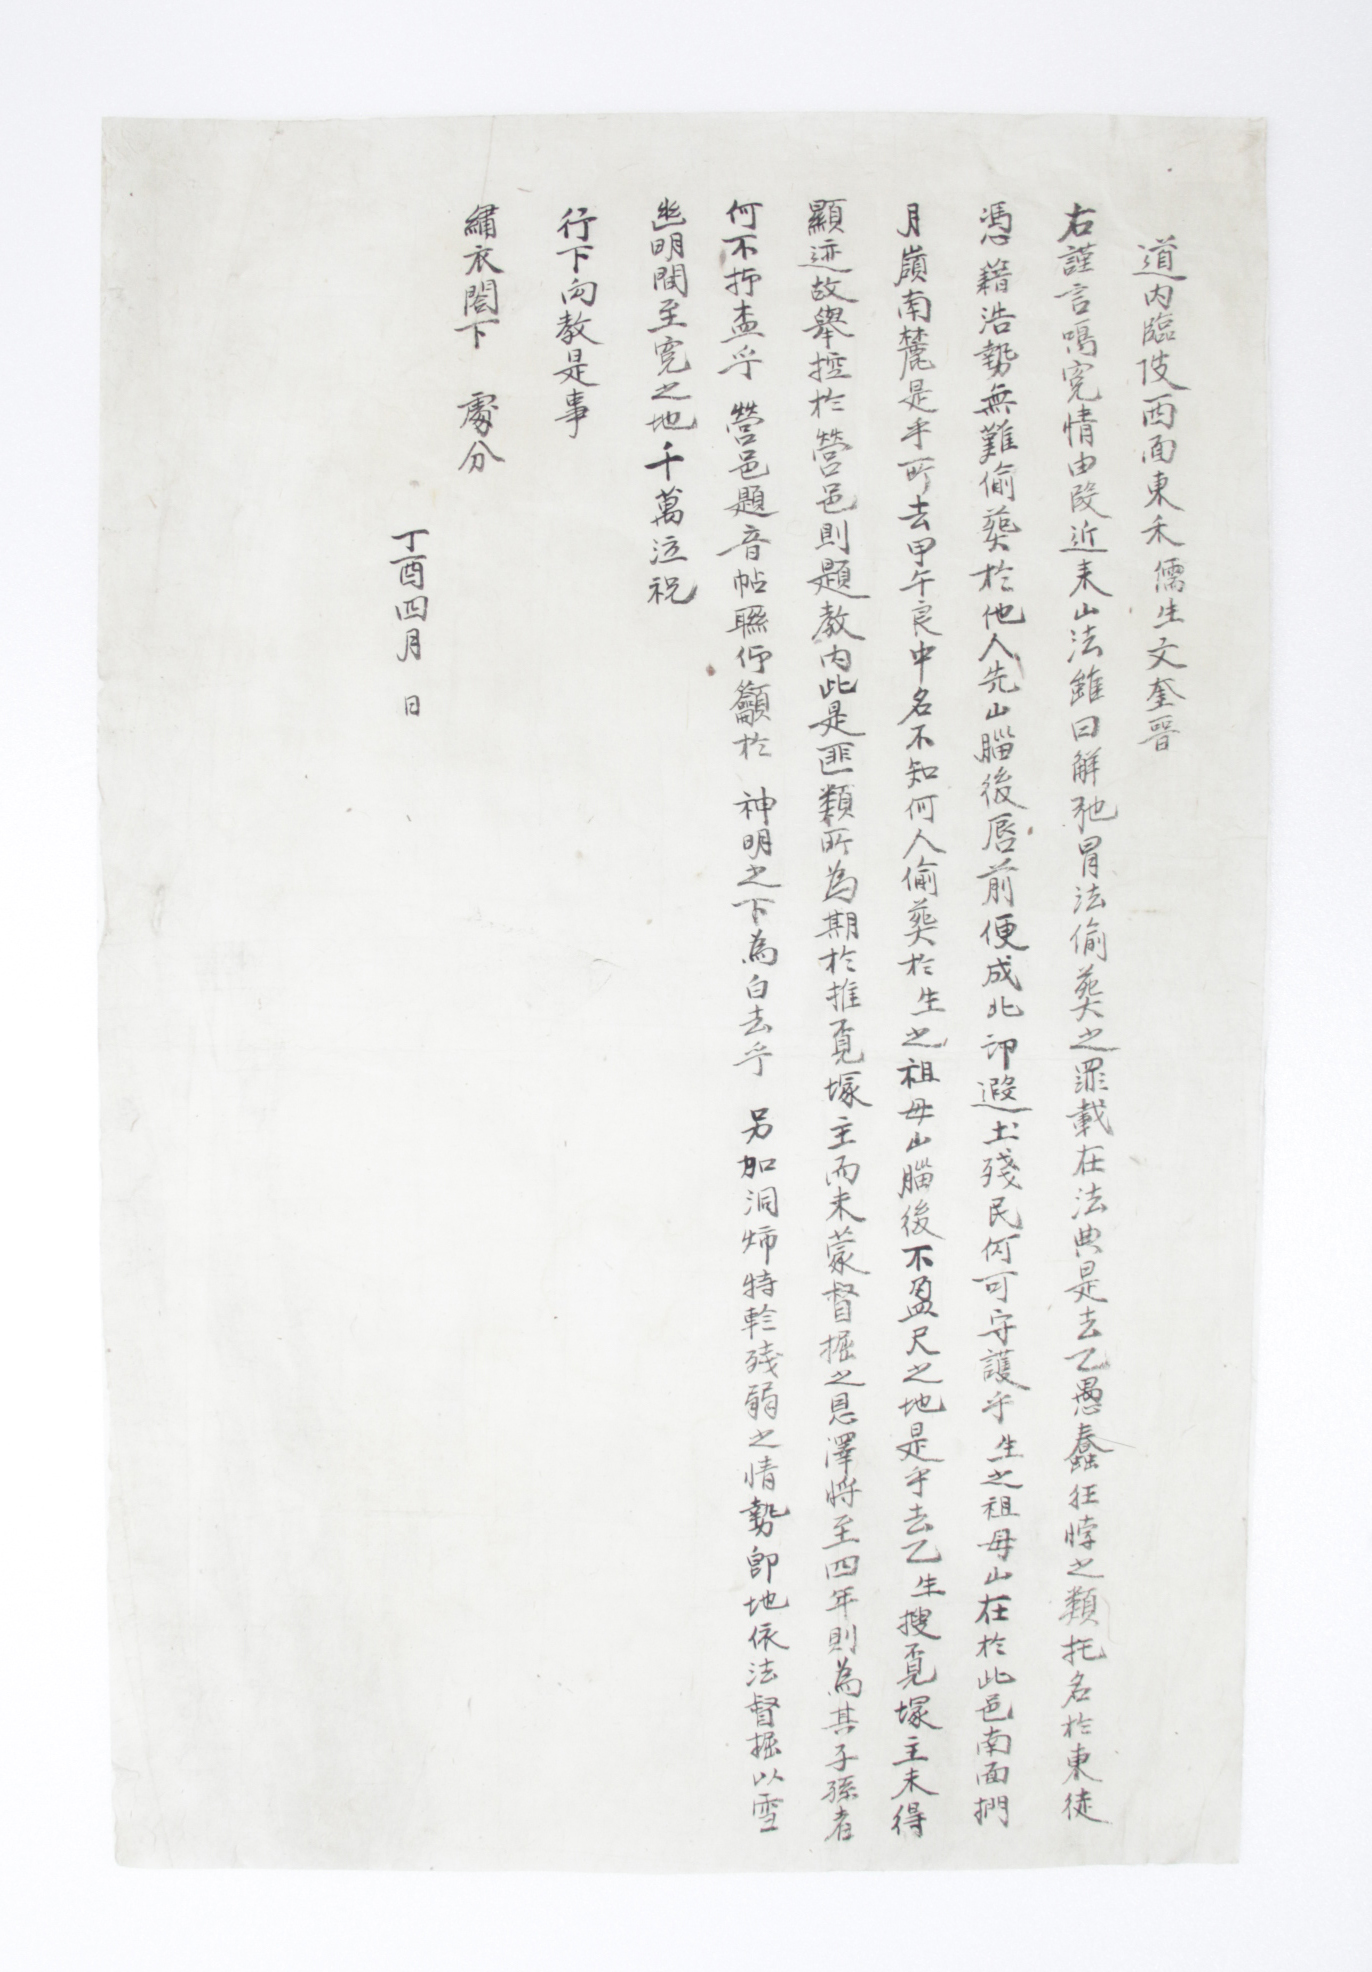 道內臨陂西面東禾儒生文奎晉
右謹言鳴寃情由段近来山法雖曰解弛冒法偷葬之罪載在法典是去乙愚蠢狂悖之類托名於東徒
憑藉浩勢無難偷葬於他人先山腦後唇前便成北邙遐土殘民何可守護乎生之祖母山在於此邑南面捫
月嶺南麓是乎所去甲午良中名不知何人偷葬於生之祖母山腦後不盈尺之地是乎去乙生搜覓塚主未得
顯迹故舉控於營邑則題教內此是匪類所為期於推覓塚主而未蒙督掘之恩澤將至四年則為其子孫者
何不抑盍乎 營邑題音帖聯仰籲於 神明之下為白去乎 另加洞燭特軫殘弱之情勢卽地依法督掘以雪
幽明間至寃之地千萬泣祝
行下向教是事
繡衣閤下 處分
丁酉四月 日